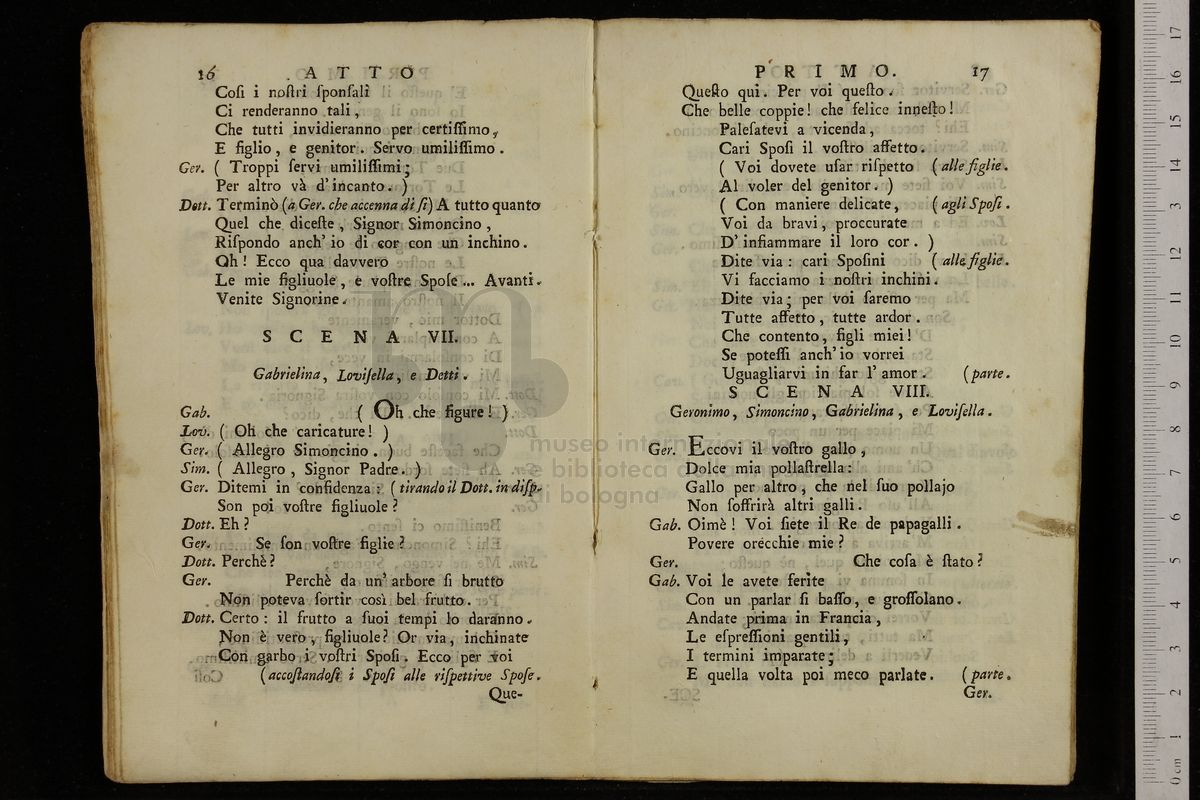 16 . A T T O
Coſi i noſtri ſponſali
Ci renderanno tali,
Che tutti invidieranno per certiſſimo,
E figlio, e genitor. Servo umiliſſimo.
Ger. ( Troppi ſervi umiliſſimi;
Per altro và d'incanto. )
Dott. Terminò (a Ger. che accenna di ſi) A tutto quanto
Quel che diceſte, Signor Simoncino,
Riſpondo anch' io di cor con un inchino.
Oh! Ecco qua davvero
Le mie figliuole, e voſtre Spoſe... Avanti.
Venite Signorine.
S C E N A VII.
Gabrielina, Loviſella, e Detti.
Gab. ( Oh che figure! )
Lov. ( Oh che caricature! )
Ger. ( Allegro Simoncino. )
Sim. ( Allegro, Signor Padre. )
Ger. Ditemi in confidenza: (tirando il Dott. in diſp.
Son poi voſtre figliuole?
Dott. Eh?
Ger. Se ſon voſtre figlie?
Dott. Perchè?
Ger. Perchè da un' arbore ſi brutto
Non poteva ſortir così bel frutto.
Dott. Certo: il frutto a ſuoi tempi lo daranno.
Non è vero, figliuole? Or via, inchinate
Con garbo i voſtri Spoſi. Ecco per voi
(accoſtandoſi i Spoſi alle riſpettive Spoſe.
Que-
P R I M O. 17
Queſto qui. Per voi queſto.
Che belle coppie! che felice inneſto!
Paleſatevi a vicenda,
Cari Spoſi il voſtro affetto.
( Voi dovete uſar riſpetto (alle figlie.
Al voler del genitor. )
( Con maniere delicate, (agli Spoſi.
Voi da bravi, proccurate
D' infiammare il loro cor. )
Dite via: cari Spoſini (alle figlie.
Vi facciamo i noſtri inchini.
Dite via; per voi ſaremo
Tutte affetto, tutte ardor.
Che contento, figli miei!
Se poteſſi anch' io vorrei
Uguagliarvi in far l' amor. (parte.
S C E N A VIII.
Geronimo, Simoncino, Gabrielina, e Loviſella.
Ger. Eccovi il voſtro gallo,
Dolce mia pollaſtrella:
Gallo per altro, che nel ſuo pollajo
Non ſoffrirà altri galli.
Gab. Oimè! Voi ſiete il Re de papagalli.
Povere orecchie mie?
Ger. Che coſa è ſtato?
Gab. Voi le avete ferite
Con un parlar ſi baſſo, e groſſolano.
Andate prima in Francia,
Le eſpreſſioni gentili,
I termini imparate;
E quella volta poi meco parlate. (parte.
Ger.
museo internazionale
e biblioteca della musica
di bologna
0 cm 1 2 3 4 5 6 7 8 9 10 11 12 13 14 15 16 17